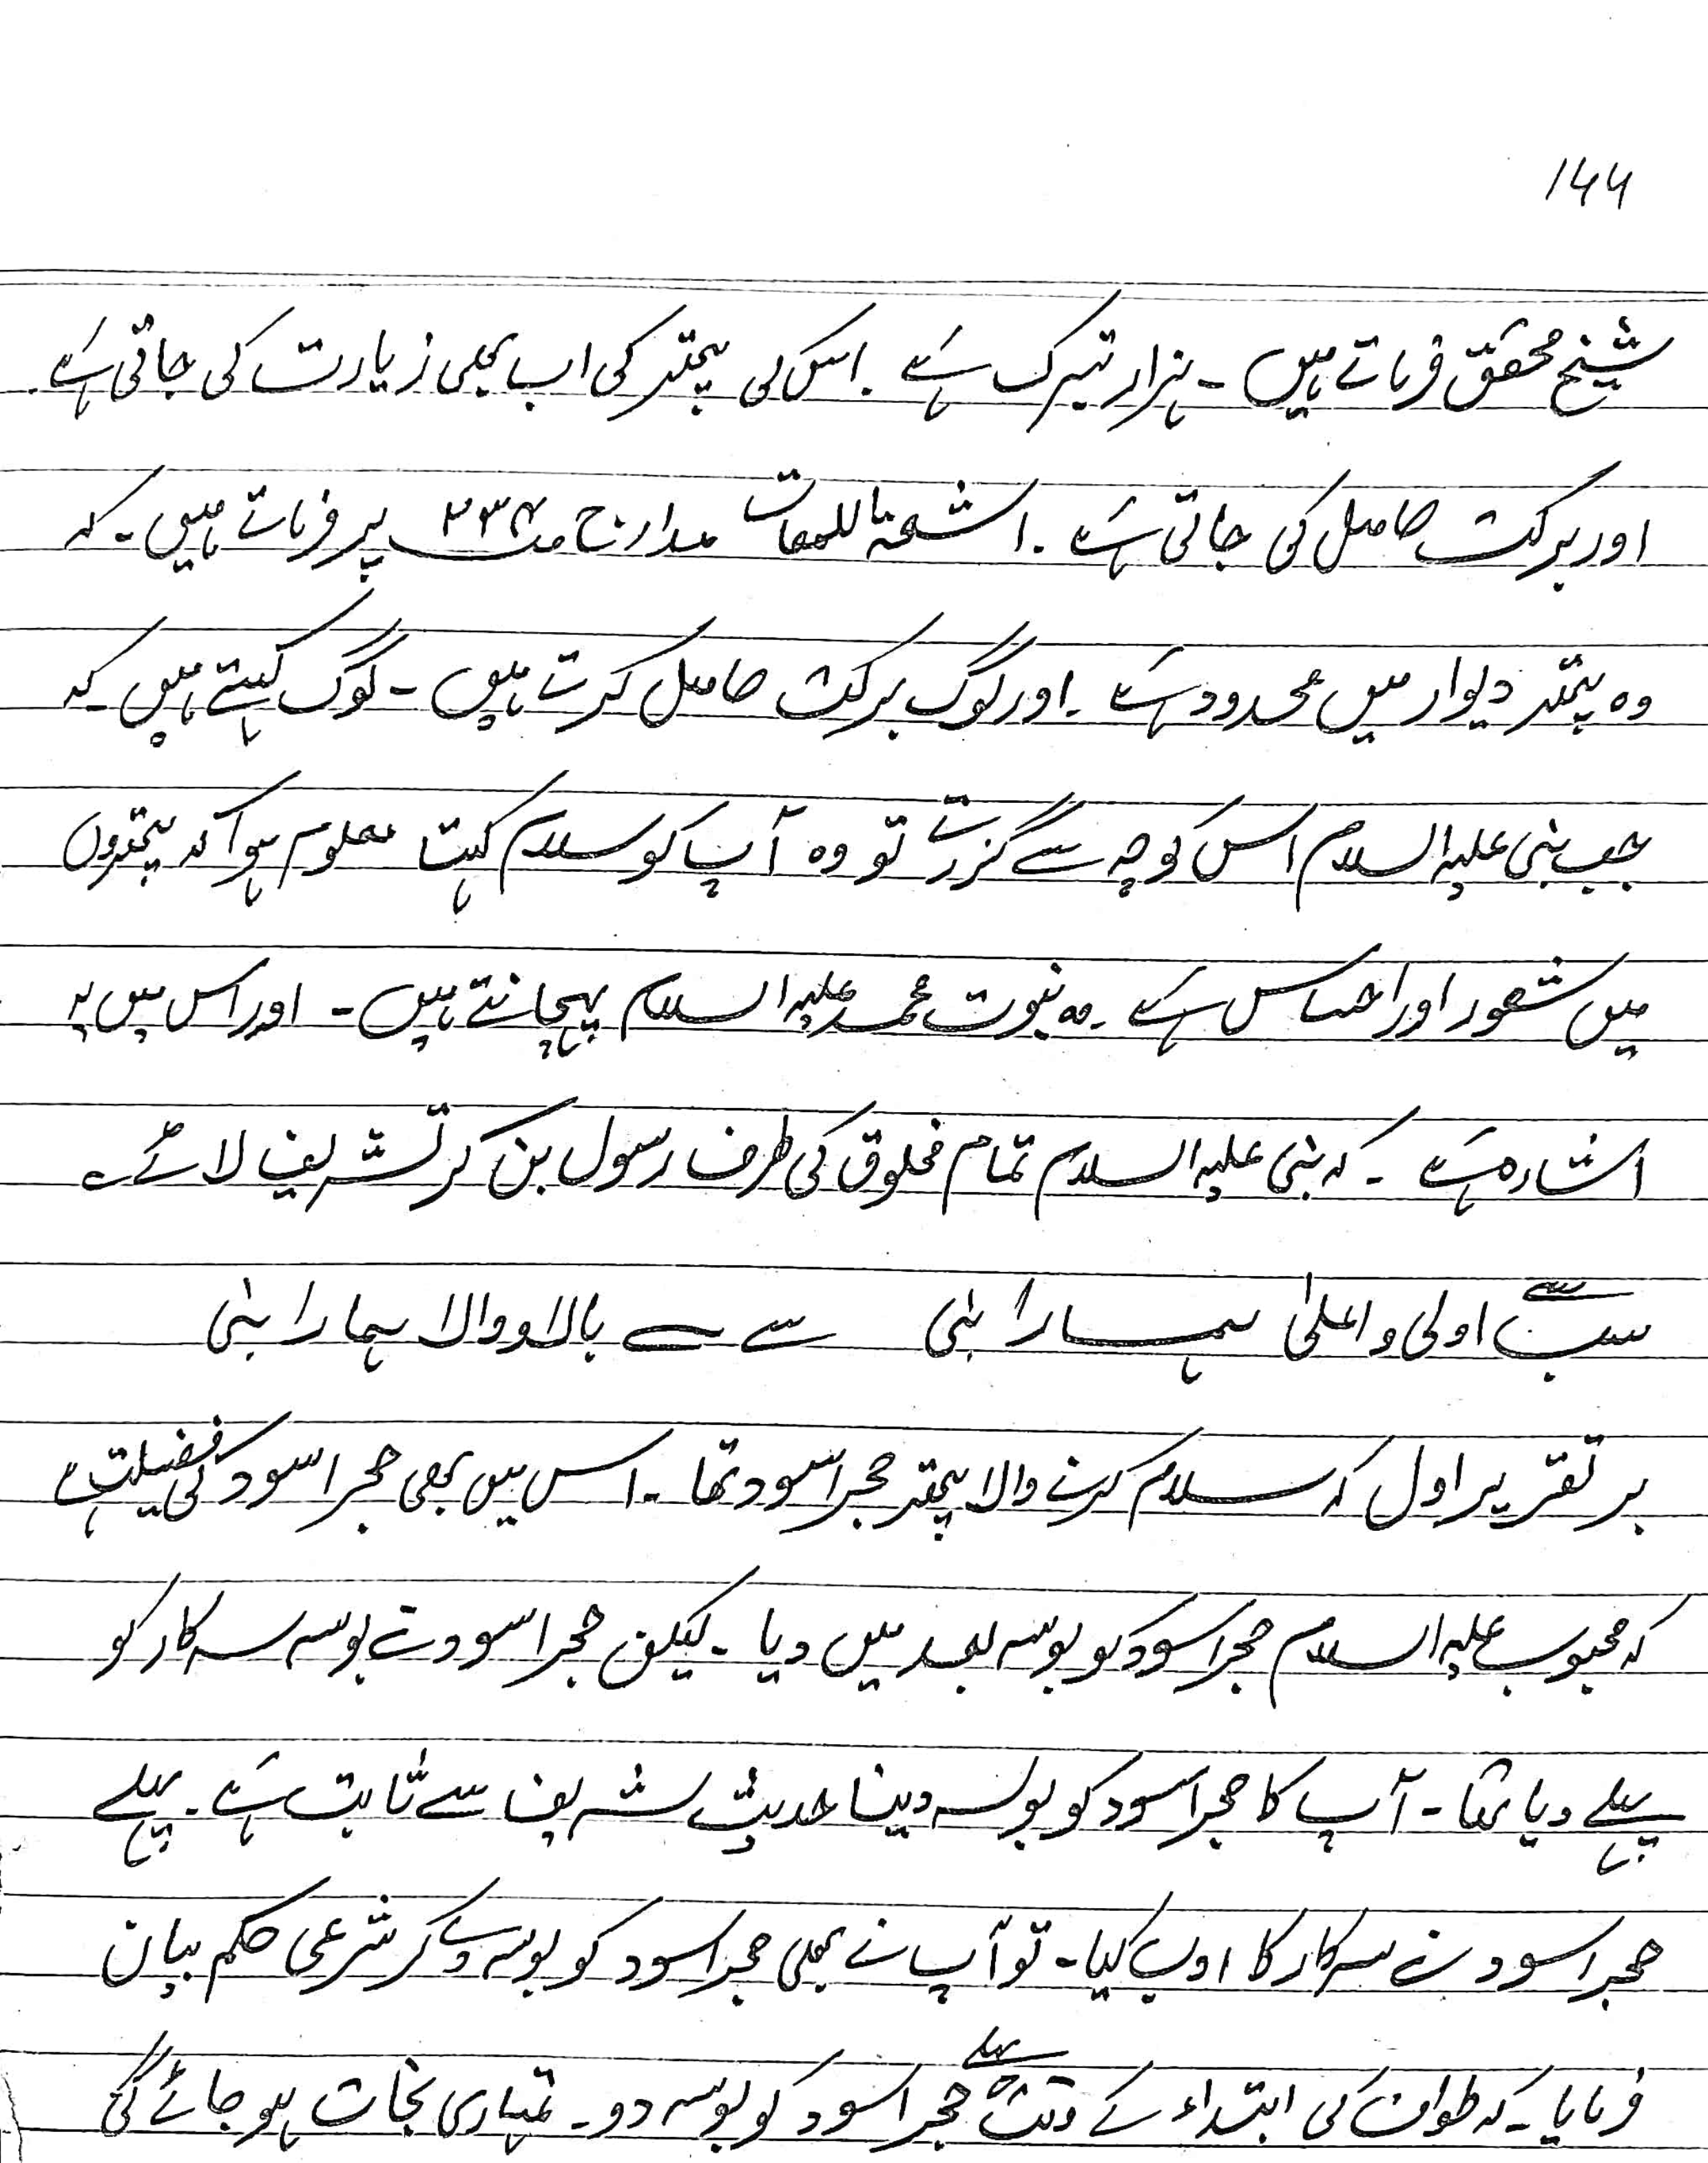 ۱۶۶
شیخ محقق فرماتے ہیں ۔ ہزار تبرک ہے ۔ اس کی پتھر کی اب بھی زیارت کی جاتی ہے ۔
اور برکت حاصل کی جاتی ہے ۔ اشعۃ اللمعات مدارج ص ۲۳۴ پر فرماتے ہیں ۔ کہ
وہ پتھر دیوار میں محدود ہے ۔ اور لوگ برکت حاصل کرتے ہیں ۔ لوگ کہتے ہیں کہ
جب نبی علیہ السلام اس کوچہ سے گزرتے تو وہ آپ کو سلام کہتا معلوم ہوا کہ پتھروں
میں شعور اور احساس ہے ۔ وہ نبوت محمد علیہ السلام پہچانتے ہیں ۔ اور اس میں یہ
اشارہ ہے ۔ کہ نبی علیہ السلام تمام مخلوق کی طرف رسول بن کر تشریف لائے ۔
سب سے اولی و اعلیٰ ہمارا نبی سے بالا و والا ہمارا نبی
بر تقریر اول کہ سلام کرنے والا پتھر حجر اسود تھا ۔ اس میں بھی حجر اسود کی فضیلت ہے
کہ محبوب علیہ السلام حجر اسود کو بوسہ بعد میں دیا ۔ لیکن حجر اسود نے بوسہ سرکار کو
پہلے دیا تھا ۔ آپ کا حجر اسود کو بوسہ دینا حدیث شریف سے ثابت ہے ۔ پہلے
حجر اسود نے سرکار کا ادب کیا ۔ تو آپ نے بھی حجر اسود کو بوسہ دے کر شرعی حکم بیان
فرمایا ۔ کہ طواف کی ابتداء کے وقت پہلے حجر اسود کو بوسہ دو ۔ تمہاری نجات ہو جائے گی